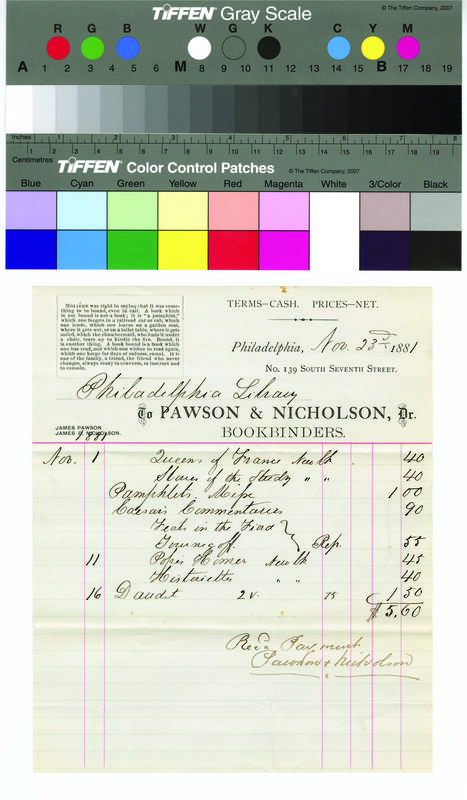 TIFFEN Gray Scale
© The Tiffen Company, 2007
R G B W G K C Y M
A 1 2 3 4 5 6 M 8 9 10 11 12 13 14 15 B 17 18 19
Inches 1 2 3 4 5 6 7 8
Centimetres 1 2 3 4 5 6 7 8 9 10 11 12 13 14 15 16 17 18 19
TIFFEN Color Control Patches
© The Tiffen Company, 2007
Blue Cyan Green Yellow Red Magenta White 3/Color Black
MOLIÈRE was right in saying that it was some-
thing to be bound, even in calf. A book which
is not bound is not a book; it is "a pamphlet,"
which one forgets in a railroad car or cab, which
one lends, which one leaves on a garden seat,
where it gets wet, or on a toilet table, where it gets
soiled, which the chambermaid, who finds it under
a chair, tears up to kindle the fire. Bound, it
is another thing. A book bound is a book which
one has read, and which one wishes to read again,
which one keeps for days of sadness, ennui. It is
one of the family, a friend, the friend who never
changes, always ready to converse, to instruct and
to console.
TERMS—CASH. PRICES—NET.
Philadelphia, Nov. 23d 1881
No. 139 SOUTH SEVENTH STREET.
Philadelphia Library
To PAWSON & NICHOLSON, Dr.
JAMES PAWSON
JAMES B. NICHOLSON.
BOOKBINDERS.
1881
Nov. 1 Queens of France New 40
Stars of the " " 40
Pamphlets, Misc 1 00
Caesar's Commentaries 90
in the
Rep. 55
11 Pope's Homer New 45
Historiettes " " 40
16 Daudet 2 v. 75 1 50
$5.60
Rec'd Payment
Pawson & Nicholson